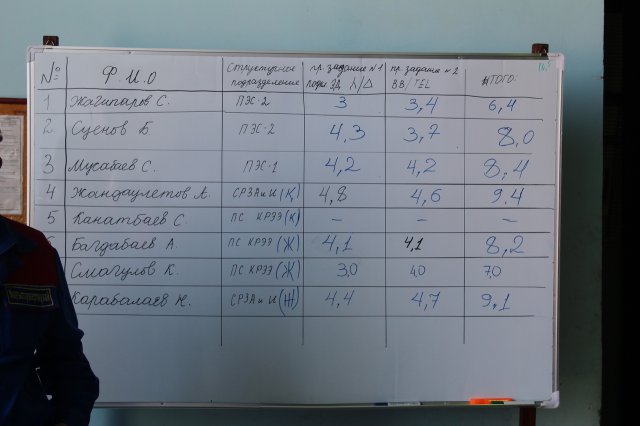 № Ф.И.О Структурное подразделение пр. задание №1 λ/Δ пр. задание №2 ВВ/TEL ИТОГО:
1 Жагипаров С. ПЭС-2 3 3,4 6,4
2 Сценов Б ПЭС-2 4,3 3,7 8,0
3 Мусабаев С. ПЭС-1 4,2 4,2 8,4
4 Жандаулетов А. СРЗАиИ (Қ) 4,8 4,6 9.4
5 Канатбаев С. ПС КРЭЭ (К) – – –
6 Багдабаев А. ПС КРЭЭ (Ж) 4,1 4,1 8,2
Смагулов К. ПС КРЭЭ (Ж) 3,0 4,0 7,0
Карабалаев Н. СРЗАиИ (Ж) 4,4 4,7 9,1